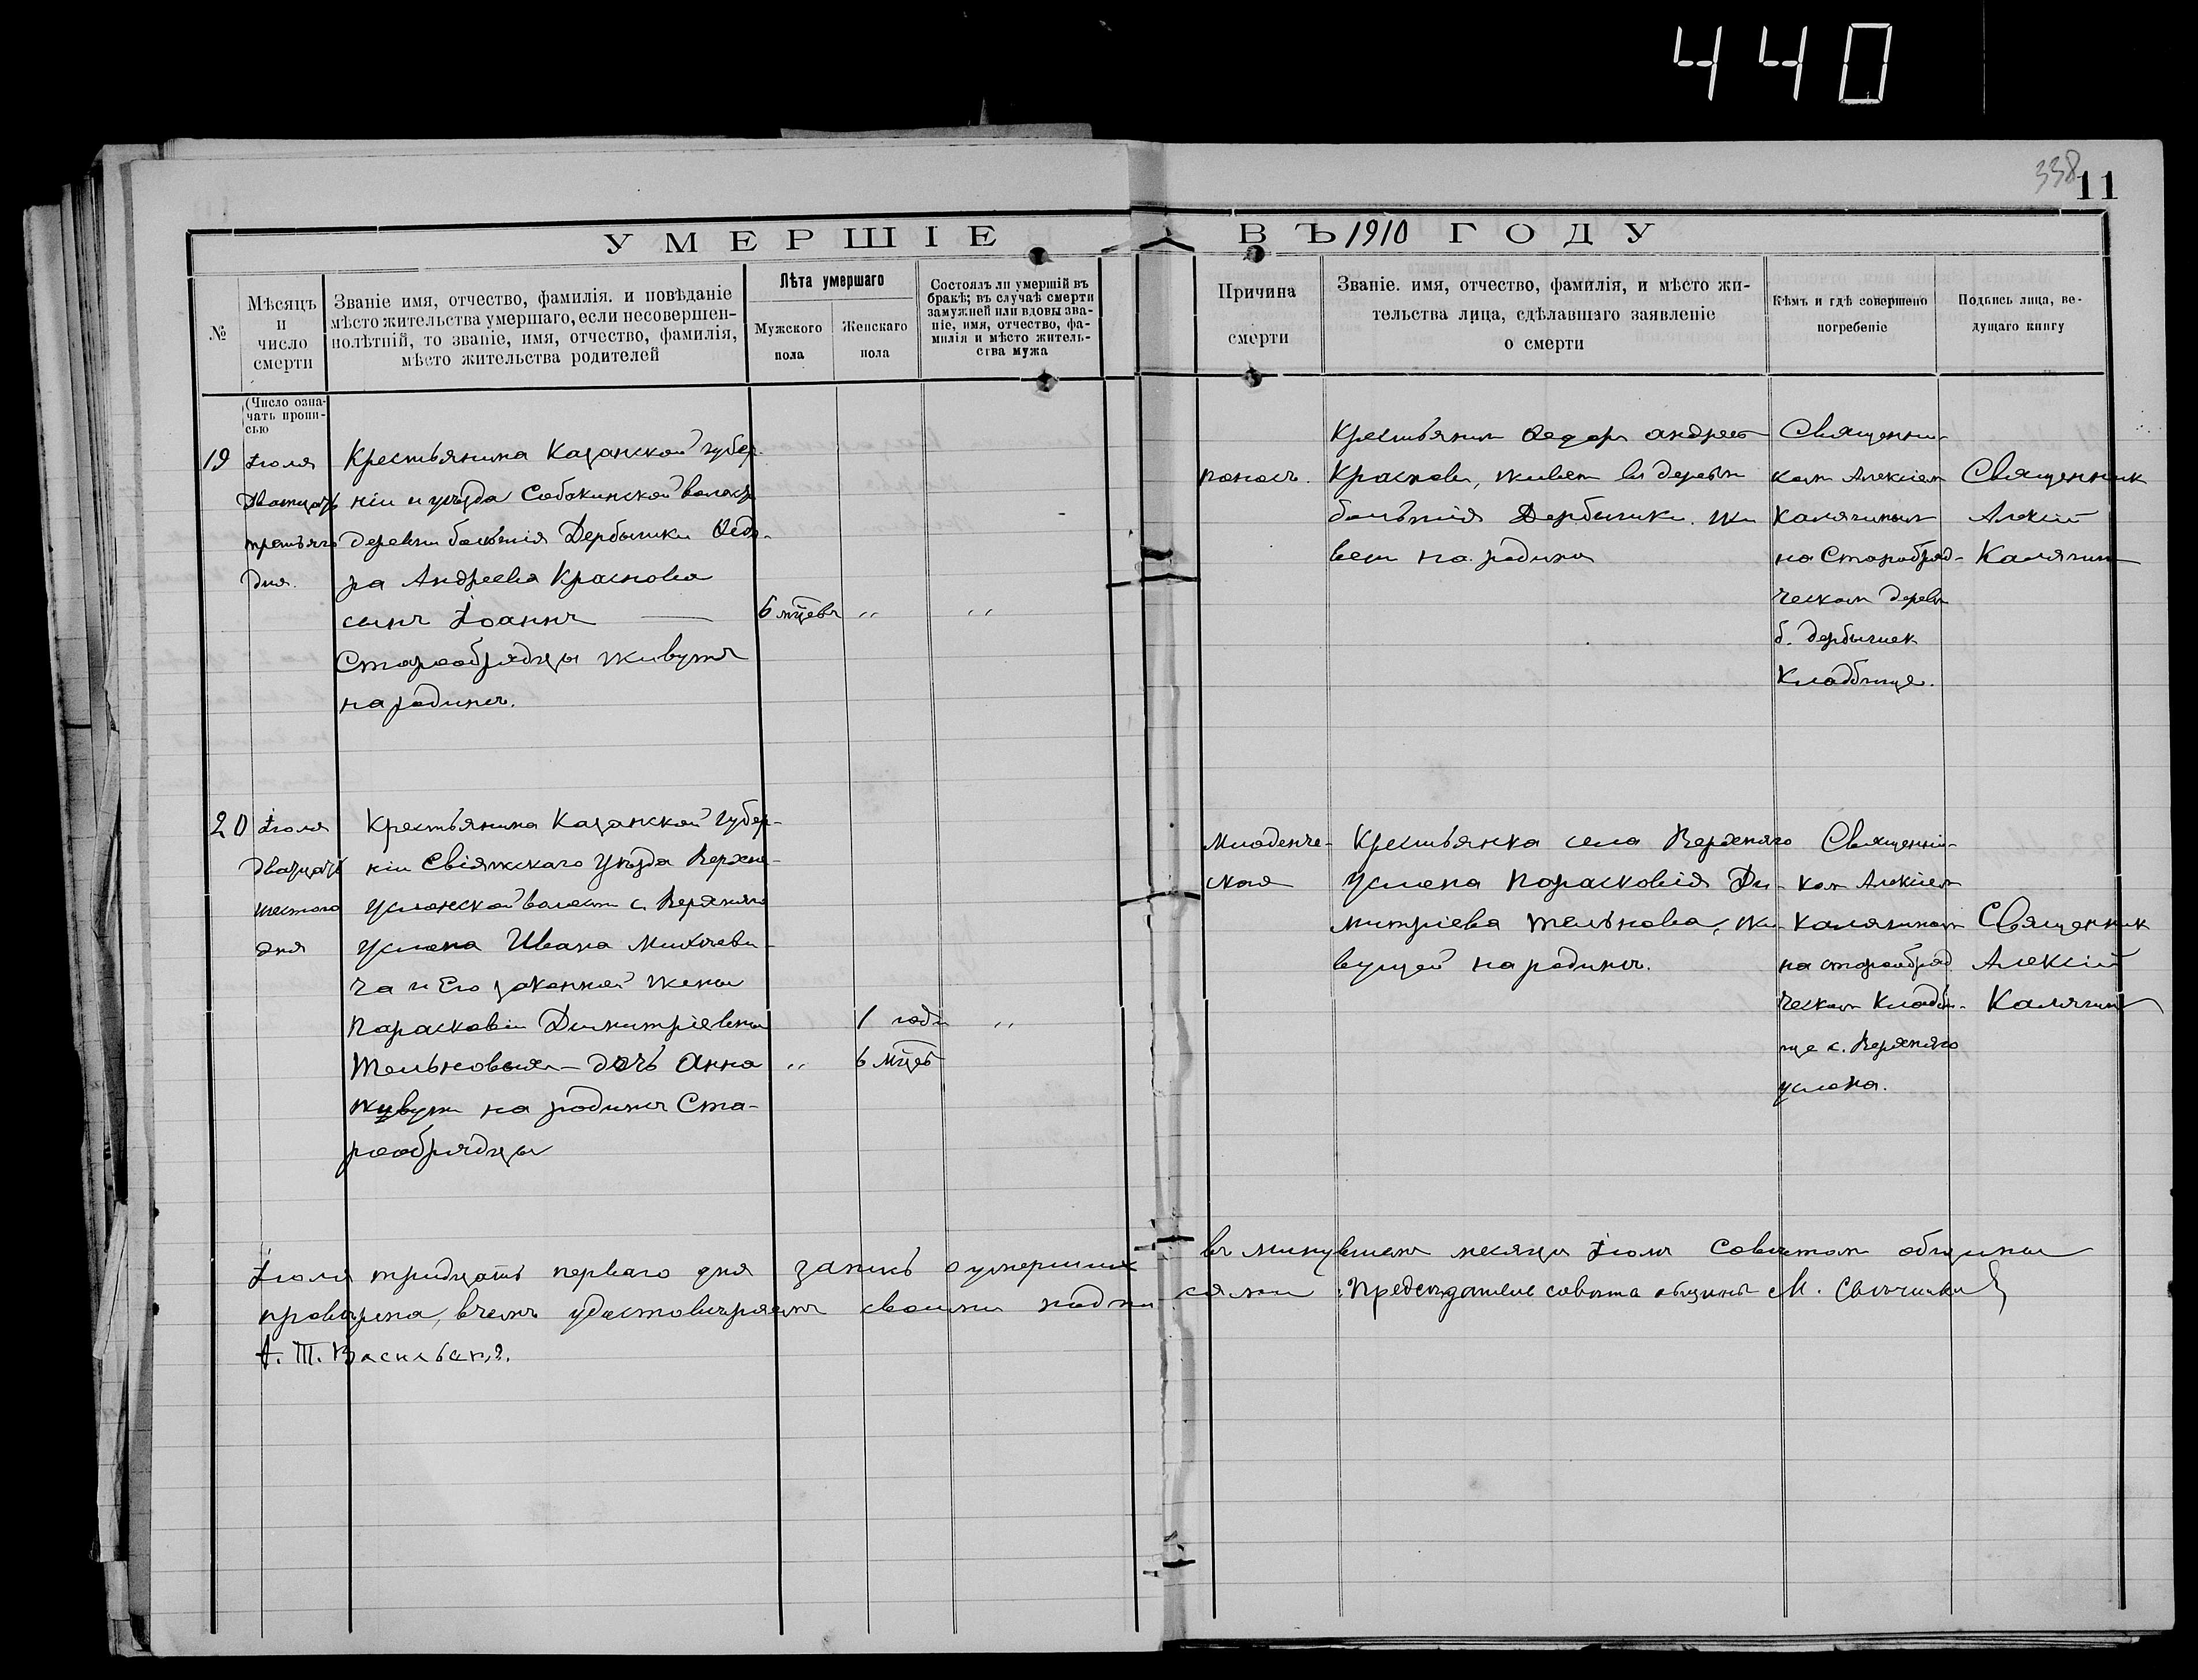 440
338
11
УМЕРШІЕ ВЪ 1910 ГОДУ
№
Мѣсяцъ
и
число
смерти
Званіе имя, отчество, фамилія. и повѣданіе
мѣсто жительства умершаго, если несовершен-
нолѣтній, то званіе, имя, отчество, фамилія,
мѣсто жительства родителей
Лѣта умершаго
Мужского
пола
Женскаго
пола
Состоялъ ли умершій въ
бракѣ; въ случаѣ смерти
замужней или вдовы зва-
ніе, имя, отчество, фа-
милія и мѣсто житель-
ства мужа
Причина
смерти
Званіе. имя, отчество, фамилія, и мѣсто жи-
тельства лица, сдѣлавшаго заявленіе
о смерти
Кѣмъ и гдѣ совершено
погребеніе
Подпись лица, ве-
дущаго книгу
(Число озна-
чать пропи-
сью
19
Іюля
Двацать
третьяго
дня.
Крестьянина Казанской губер-
ніи и уѣзда Собакинской волости
деревни большія Дербышки Ѳедо-
ра Андреева Краснова
сынъ Іоаннъ
Старообрядцы живутъ
на родинѣ.
6 мцевъ
"
"
поносъ.
Крестьянин Ѳедоръ андреев
Красновъ, живет въ деревни
большія Дербышки. жи
вет на родинѣ
Священни-
ком Алексіем
Калягиным
на Старобряд-
ческом деревн
б. дербышек
Кладбище.
Священник
Алексій
Калягин
20
Іюля
двацать
шестого
дня
Крестьянина Казанской Губер-
ніи Свіяжскаго Уѣзда Верхне-
Услонской волости с. Верхняго
Услона Ивана Михѣеви-
ча и Его законной жены
Парасковіи Димитріевны
Тельновых – дочь Анна
живут на родинѣ Ста-
рообрядцы
"
1 годъ
6 мцев
"
Младенче-
ская
Крестьянка села Верхняго
Услона Парасковія Ди-
митріева Тельнова, жи-
вущей на родинѣ.
Священни-
ком Алексіем
Калягиным
на старообряд
ческом Кладби-
ще с. Верхняго
услона.
Священник
Алексій
Калягин
Іюля тридцать перваго дня запись о умерших въ минувшемъ месяцѣ Іюлѣ Советом общины
провѣрена, вчемъ удостовѣряемъ своими подписями. Председатель совѣта общины М. Свѣчников
А. Т. Васильевъ.